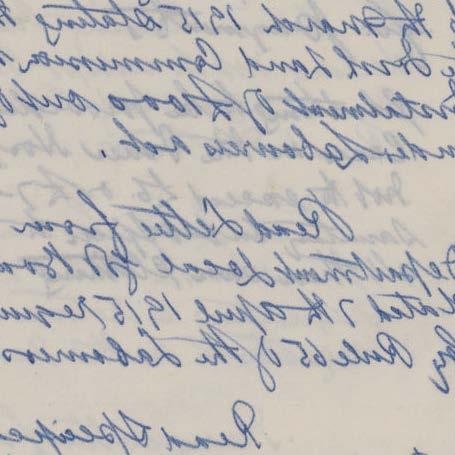 th March 1915 stating
Irish Land Commission
Instalment of £1000 out of
under Labourers Act.
Read Letter from
Department Local Govt Board
dated 7th April 1915
by Rule 65 of the Labourers
Read Specific